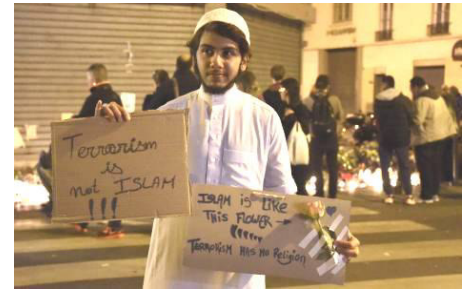 Terrorism
is
not ISLAM
!!!
ISLAM is Like
THIS FLOWER →
!!!!!!
TERRORISM HAS NO Religion